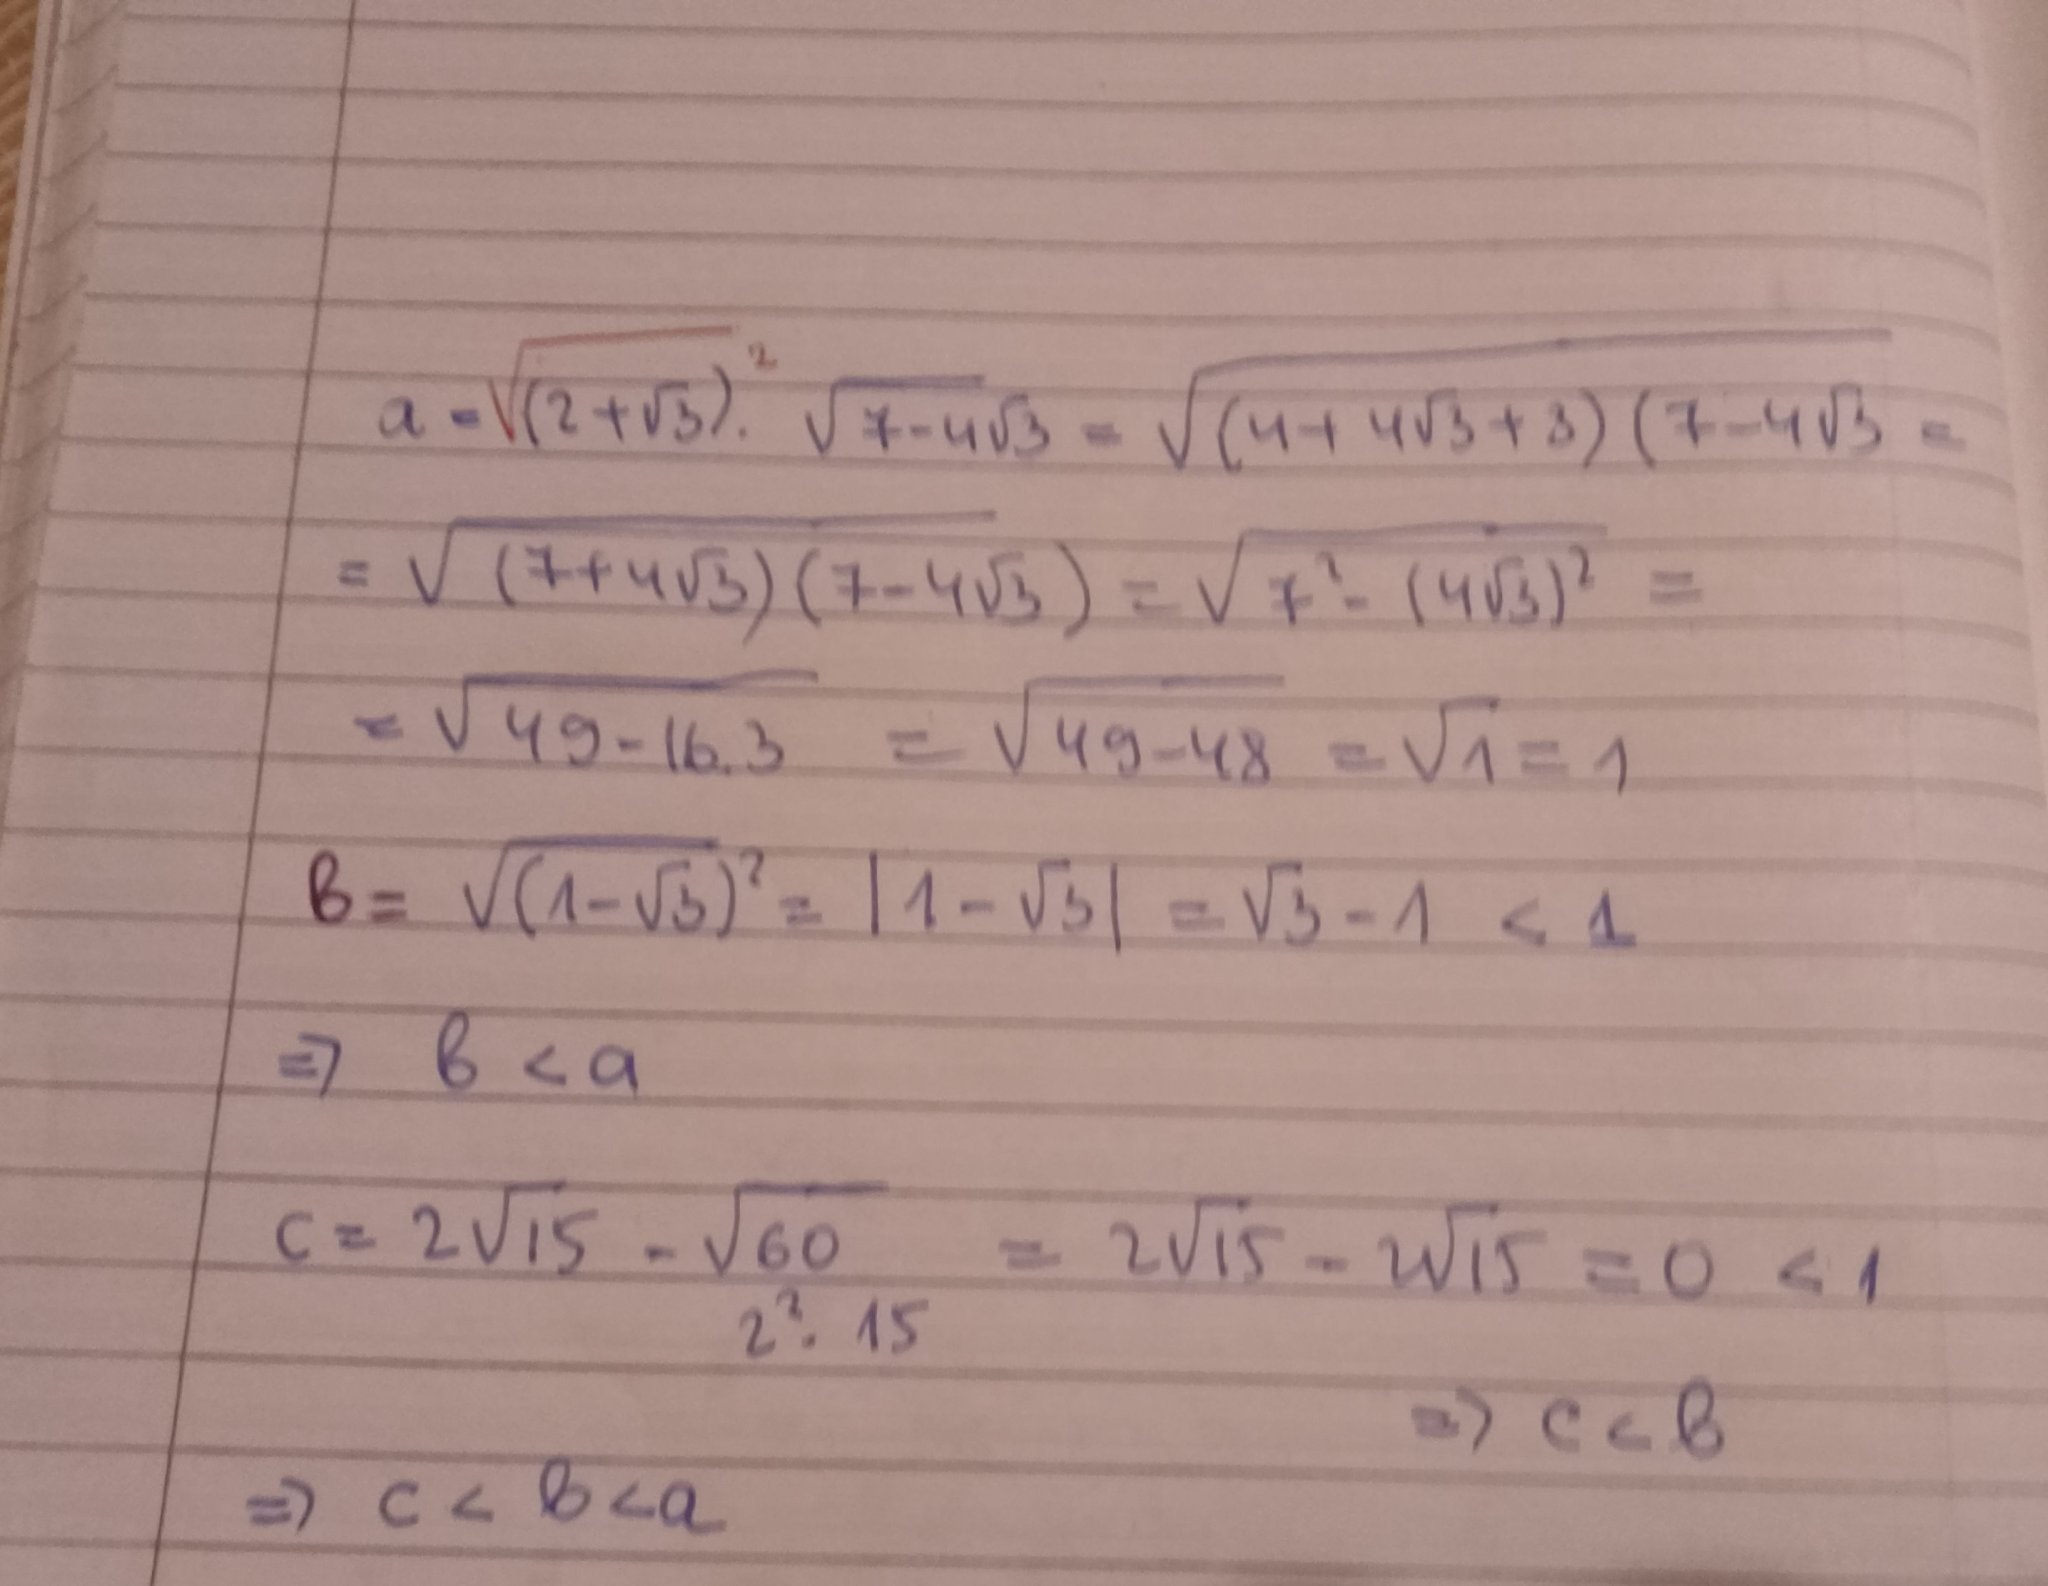 a = √(2+√3)². √7-4√3 = √(4+4√3+3)(7-4√3 =
= √(7+4√3)(7-4√3) = √7²-(4√3)² =
= √49-16.3 = √49-48 = √1 = 1
B = √(1-√3)² = |1-√3| = √3-1 < 1
=> в < a
c = 2√15 - √60 = 2√15 - 2√15 = 0 < 1
2². 15
=> c < в
=> c < в < a